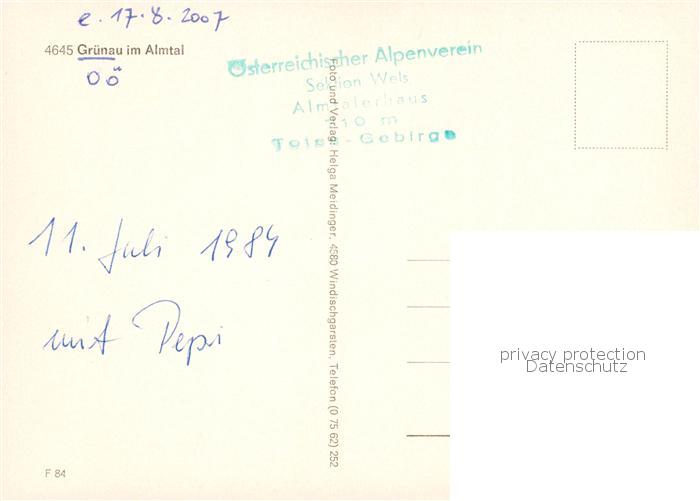 e. 17.8.2007
4645 Grünau im Almtal
OÖ
Österreichischer Alpenverein
Sektion Wels
Almtalerhaus
710 m
Totes-Gebirge
Foto und Verlag: Helga Meidinger, 4580 Windischgarsten, Telefon (0 75 62) 252
11. Juli 1984
mit Pepi
privacy protection
Datenschutz
F 84